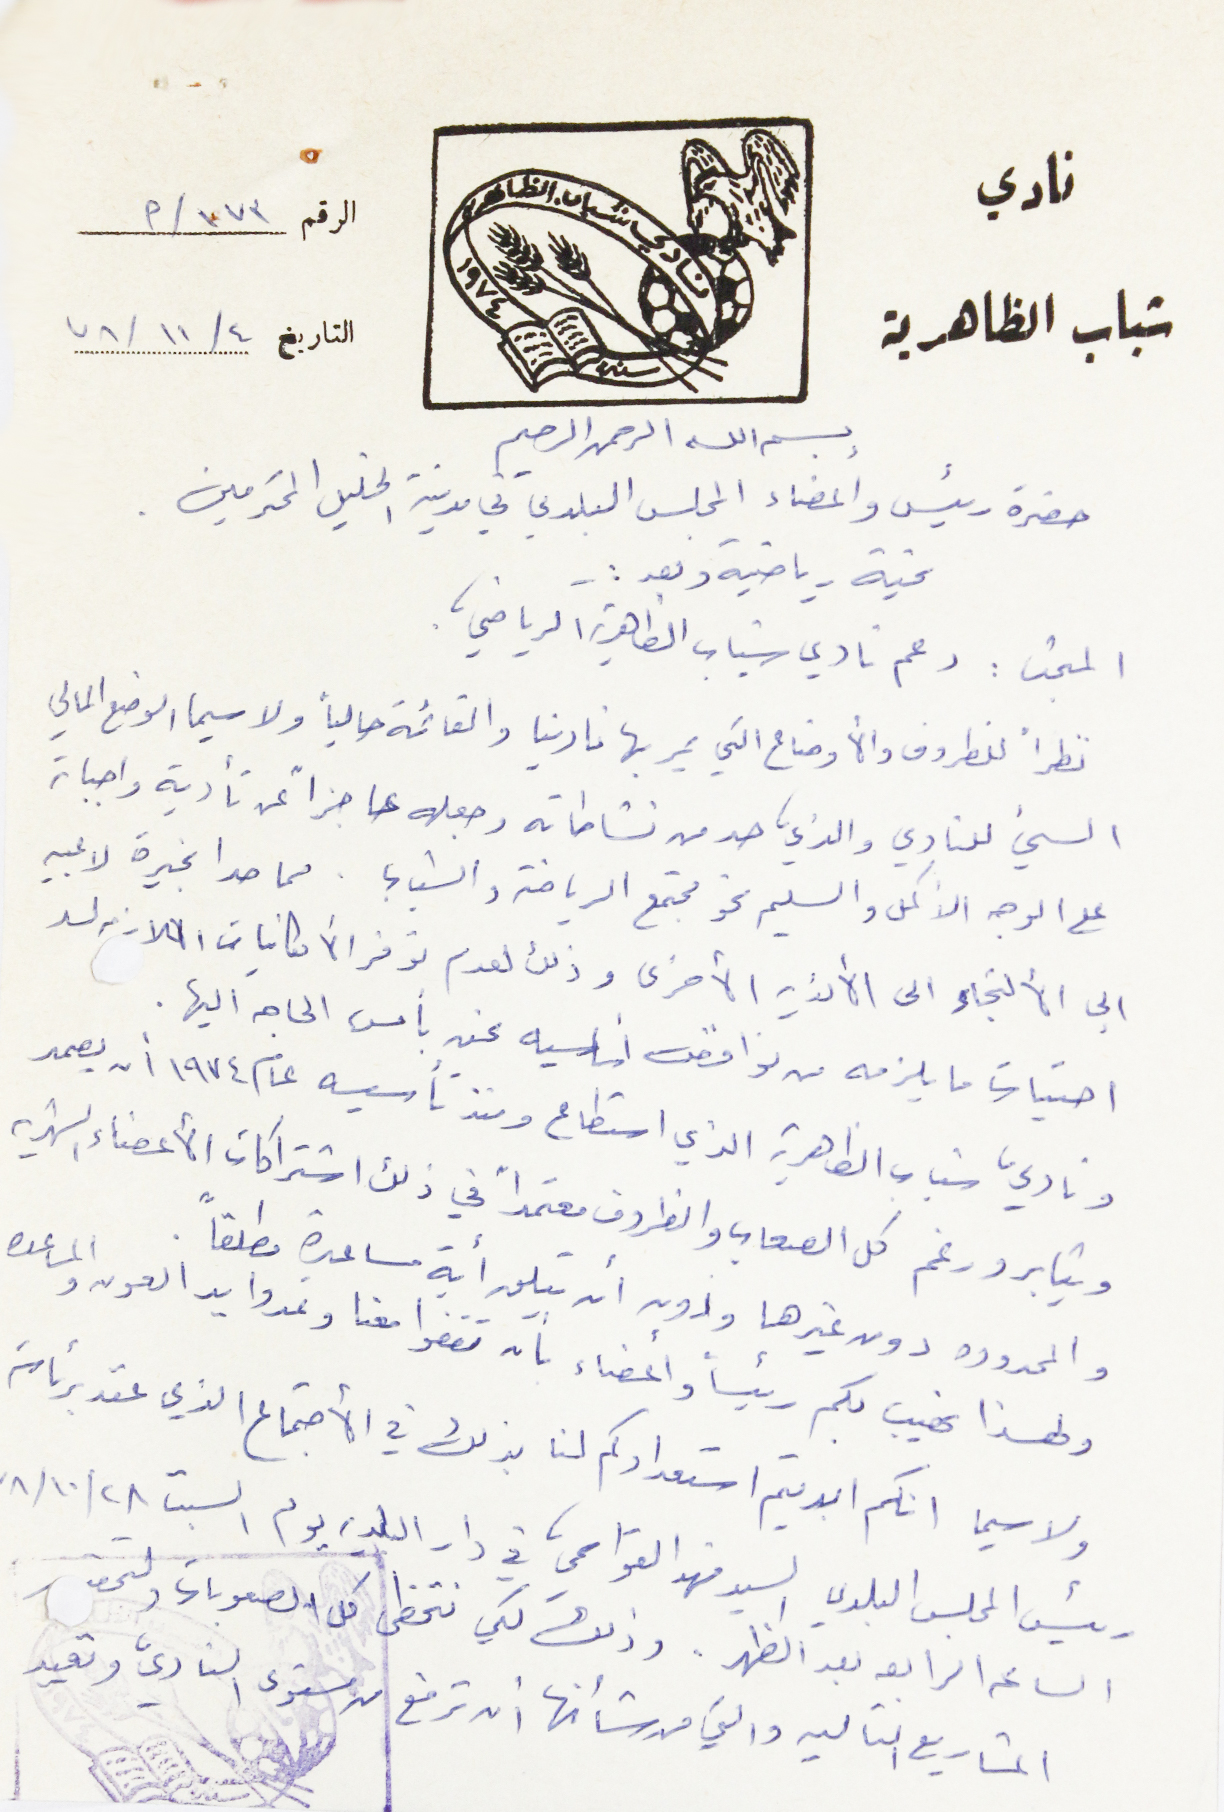 نادي
شباب الظاهرية
الرقم ٣٧٣/م
التاريخ ٤/ ١١ /٧٨
نادي شباب الظاهرية
١٩٧٤
بسم الله الرحمن الرحيم
حضرة رئيس وأعضاء المجلس البلدي في مدينة الخليل المحترمين .
تحية رياضية وبعد :ـ
المبحث : دعم نادي شباب الظاهرية الرياضي .
نظراً للظروف والأوضاع التي يمر بها نادينا والقائمة حالياً ولا سيما الوضع المالي
السيئ للنادي والذي حد من نشاطاته وجعله عاجزاً عن تأدية واجباته
على الوجه الأكمل والسليم نحو مجتمع الرياضة والشباب . مما حدا بخيرة لاعبيه
الى الألتجاء الى الأندية الأخرى وذلك لعدم توفر الأمكانيات اللازمه لسد
احتياجات ما يلزمه من نواقص أساسيه نحن بأمس الحاجه اليها .
ونادي شباب الظاهرية الذي استطاع ومنذ تأسيسه عام ١٩٧٤ أن يصمد
ويثابر ورغم كل الصعاب والظروف معتمداً في ذلك اشتراكات الأعضاء الشهريه
والمحدوده دون غيرها وبدون أن يتلقى أية مساعدة مطلقاً .
ولهذا نهيب بكم رئيساً وأعضاء بأن تقفوا معنا وتمدوا يد العون والمساعده
ولا سيما انكم ابديتم استعدادكم لنا بذلك في الأجتماع الذي عقد برئاسة
رئيس المجلس البلدي السيد فهد القواسمي في دار البلديه يوم السبت ٢٨/١٠/٧٨
الساعه الرابعه بعد الظهر . وذلك لكي نتخطى كل الصعوبات
المشاريع التاليه والتي من شأنها أن ترفع من مستوى النادي وتعيد